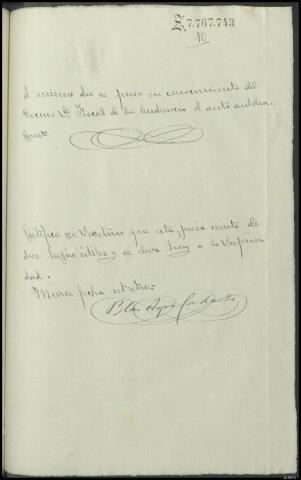 Z.7.767.743
10
El mismo dia se puso en conocimiento del
Excmo Sr. Fiscal de la Audiencia el auto anterior.
Certifico yo Secretario que esta pieza consta de
dos hojas útiles y se eleva hoy a la Superiori
dad.
fecha ut retro=